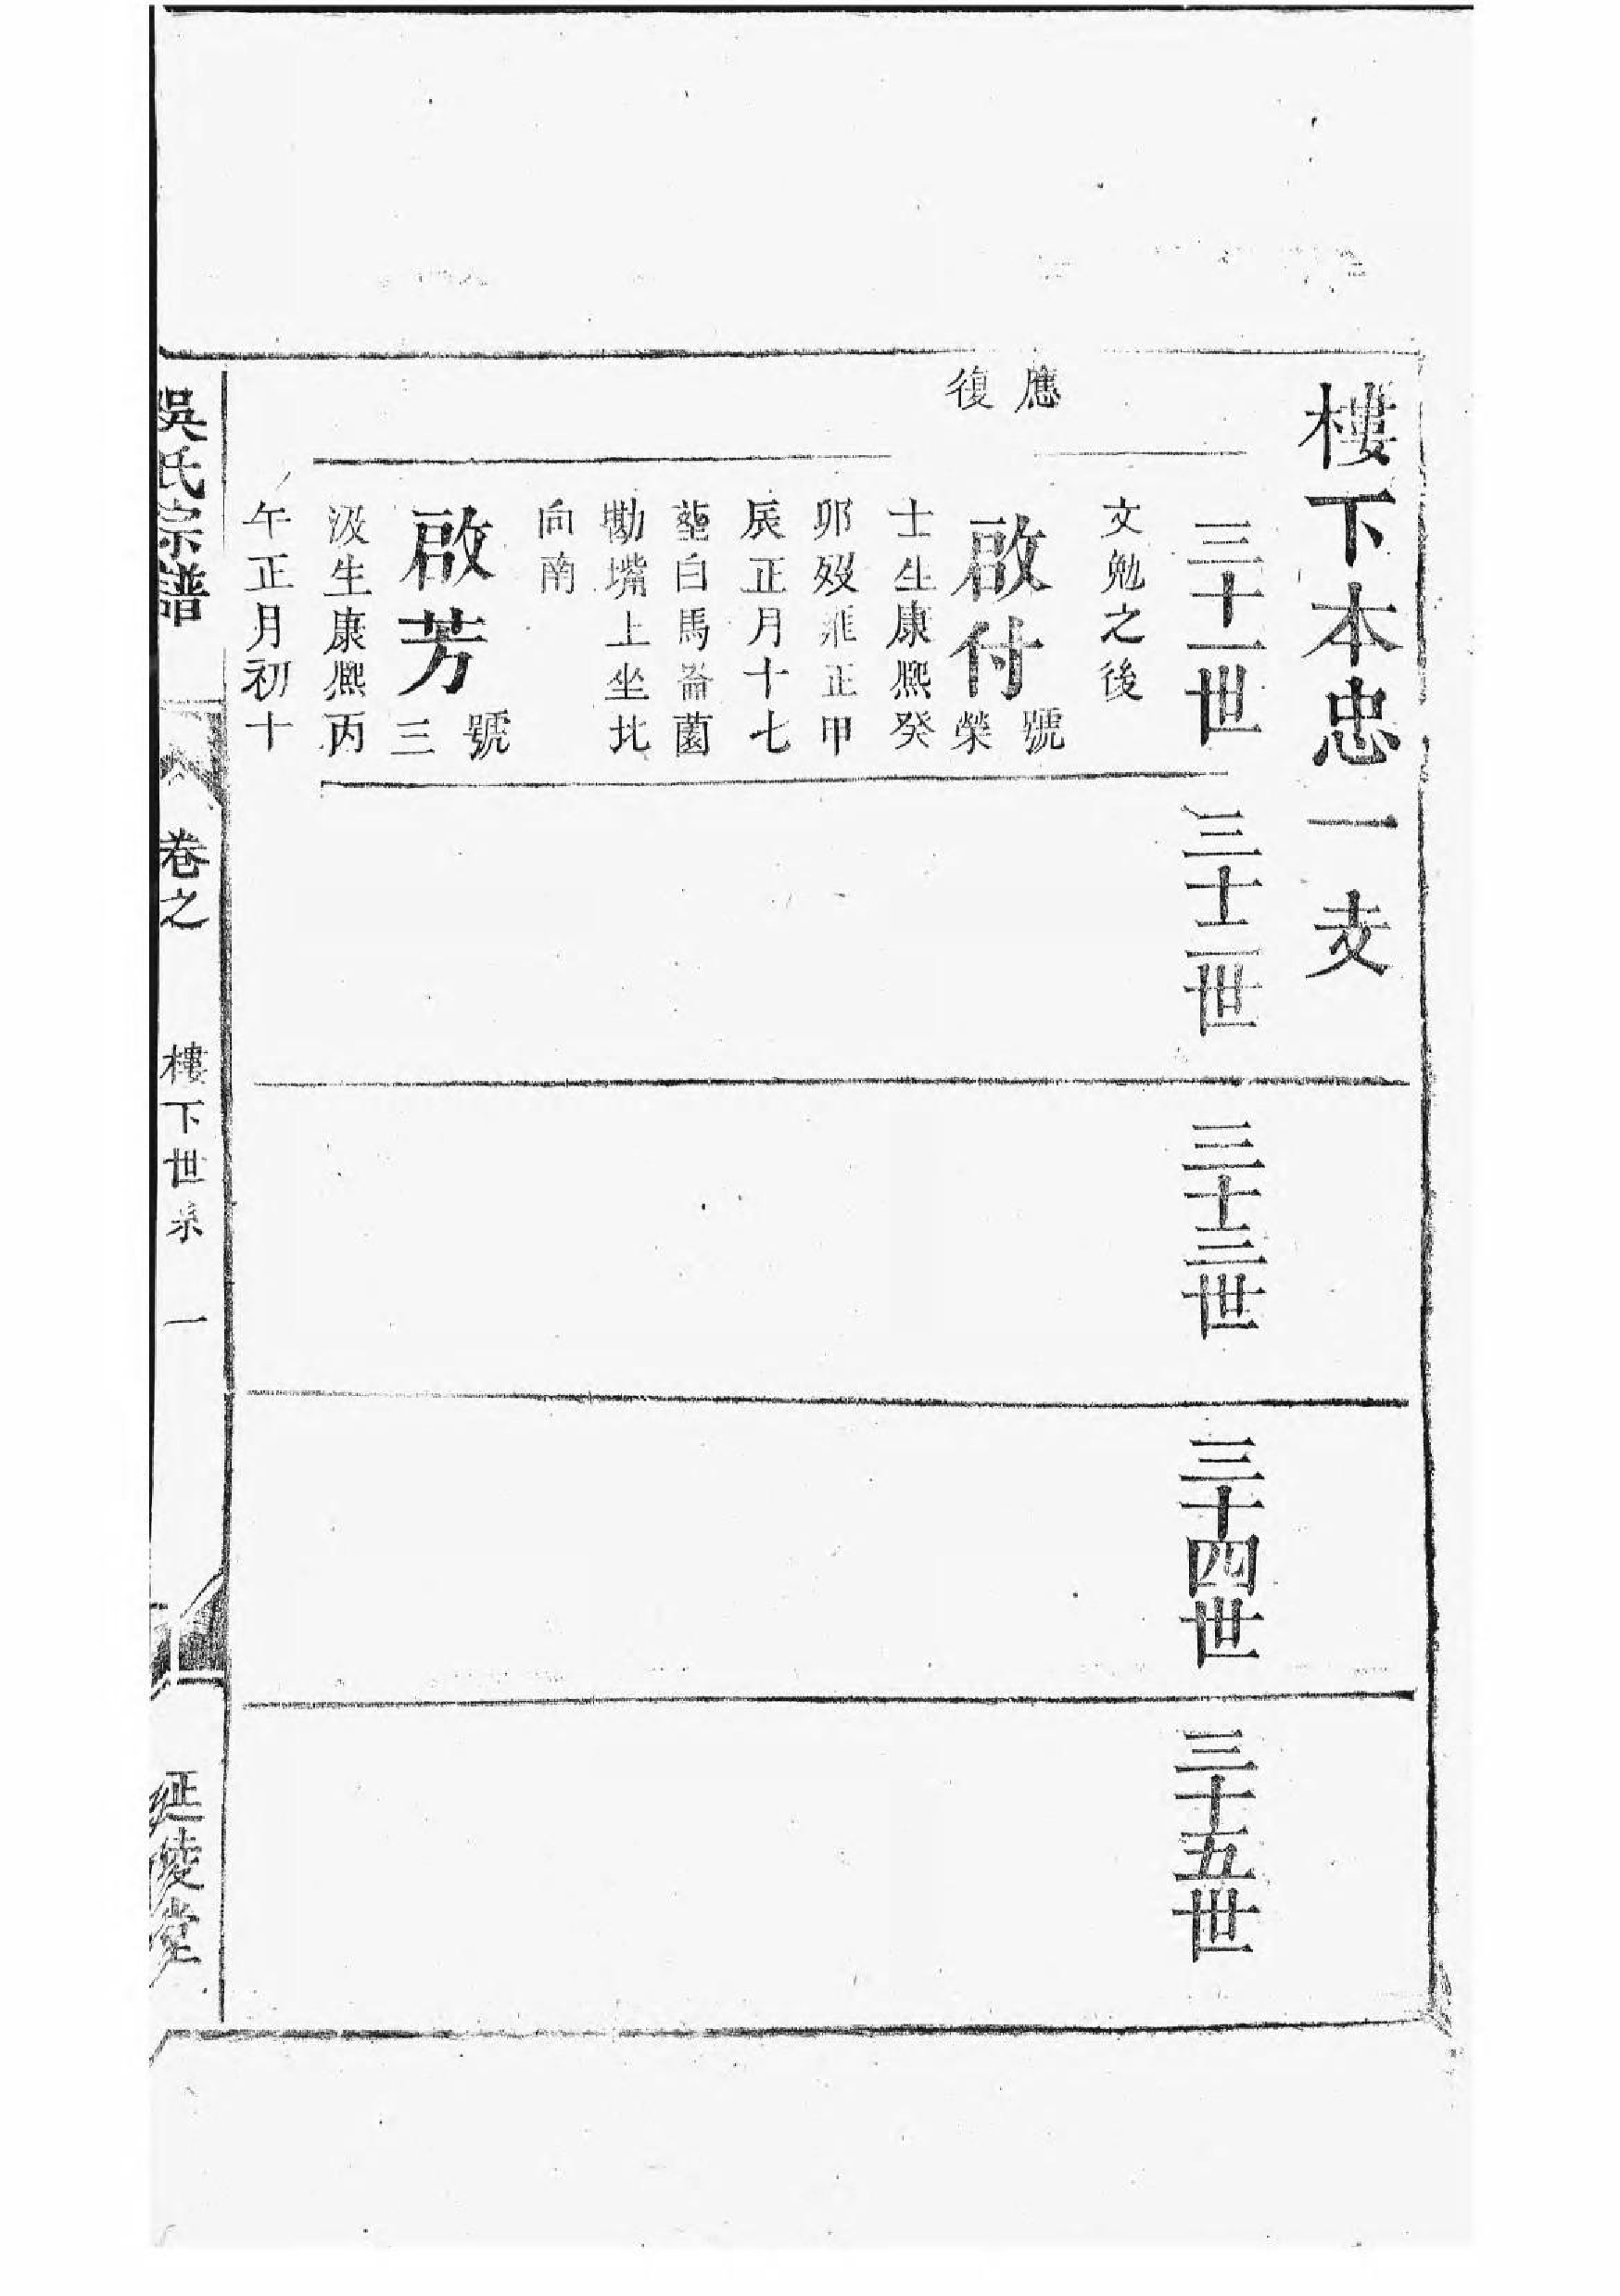 樓下本忠一支
三十一世
三十二世
三十三世
三十四世
三十五世
應
復
文勉之後
啟付
號
榮
士生康熈癸
卯歿雍正甲
辰正月十七
塟白馬崙薗
勘嘴上坐北
向南
啟芳
號
三
汲生康熈丙
午正月初十
吳氏宗譜
卷之
樓下世系
一
延陵堂